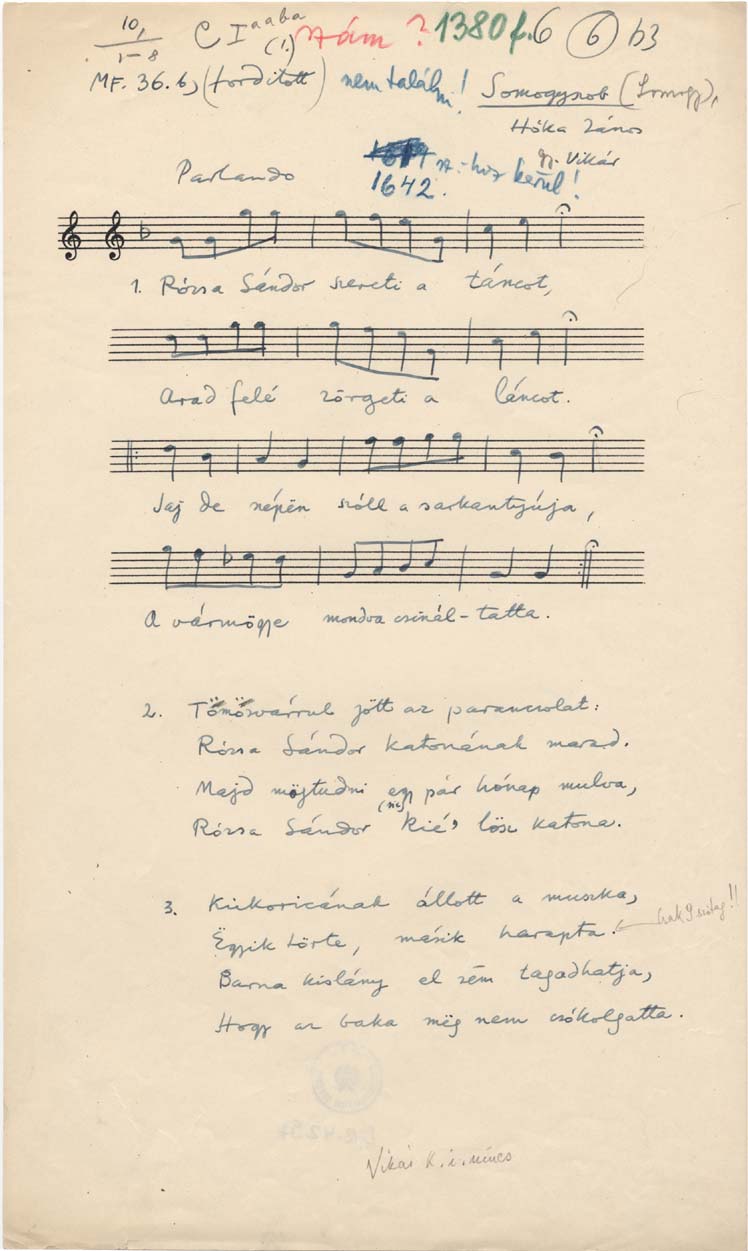 10,
1–8
C I aaba
(1.)
Szám ? 1380 f. 6 6 b3
MF. 36. b, (fordított) nem találni! Somogyszob (Somogy),
Hóka János
gy. Vikár
Parlando
sz.-hoz kerül!
1642.
1. Rózsa Sándor szereti a táncot,
Arad felé zörgeti a láncot.
Jaj de népén szóll a sarkantyúja,
A vármögye mondva csinál-tatta.
2. Tömösvárrul jött az parancsolat:
Rózsa Sándor katonának marad.
Majd mögtudni egy pár hónap mulva,
(sic)
Rózsa Sándor kié, lösz katona.
3. Kukoricának állott a muszka,
csak 9 szótag!!
Ëgyik törte, másik harapta.
Barna kislány el sëm tagadhatja,
Hogy az baka mëg nem csókolgatta.
Vikár K. i. nincs